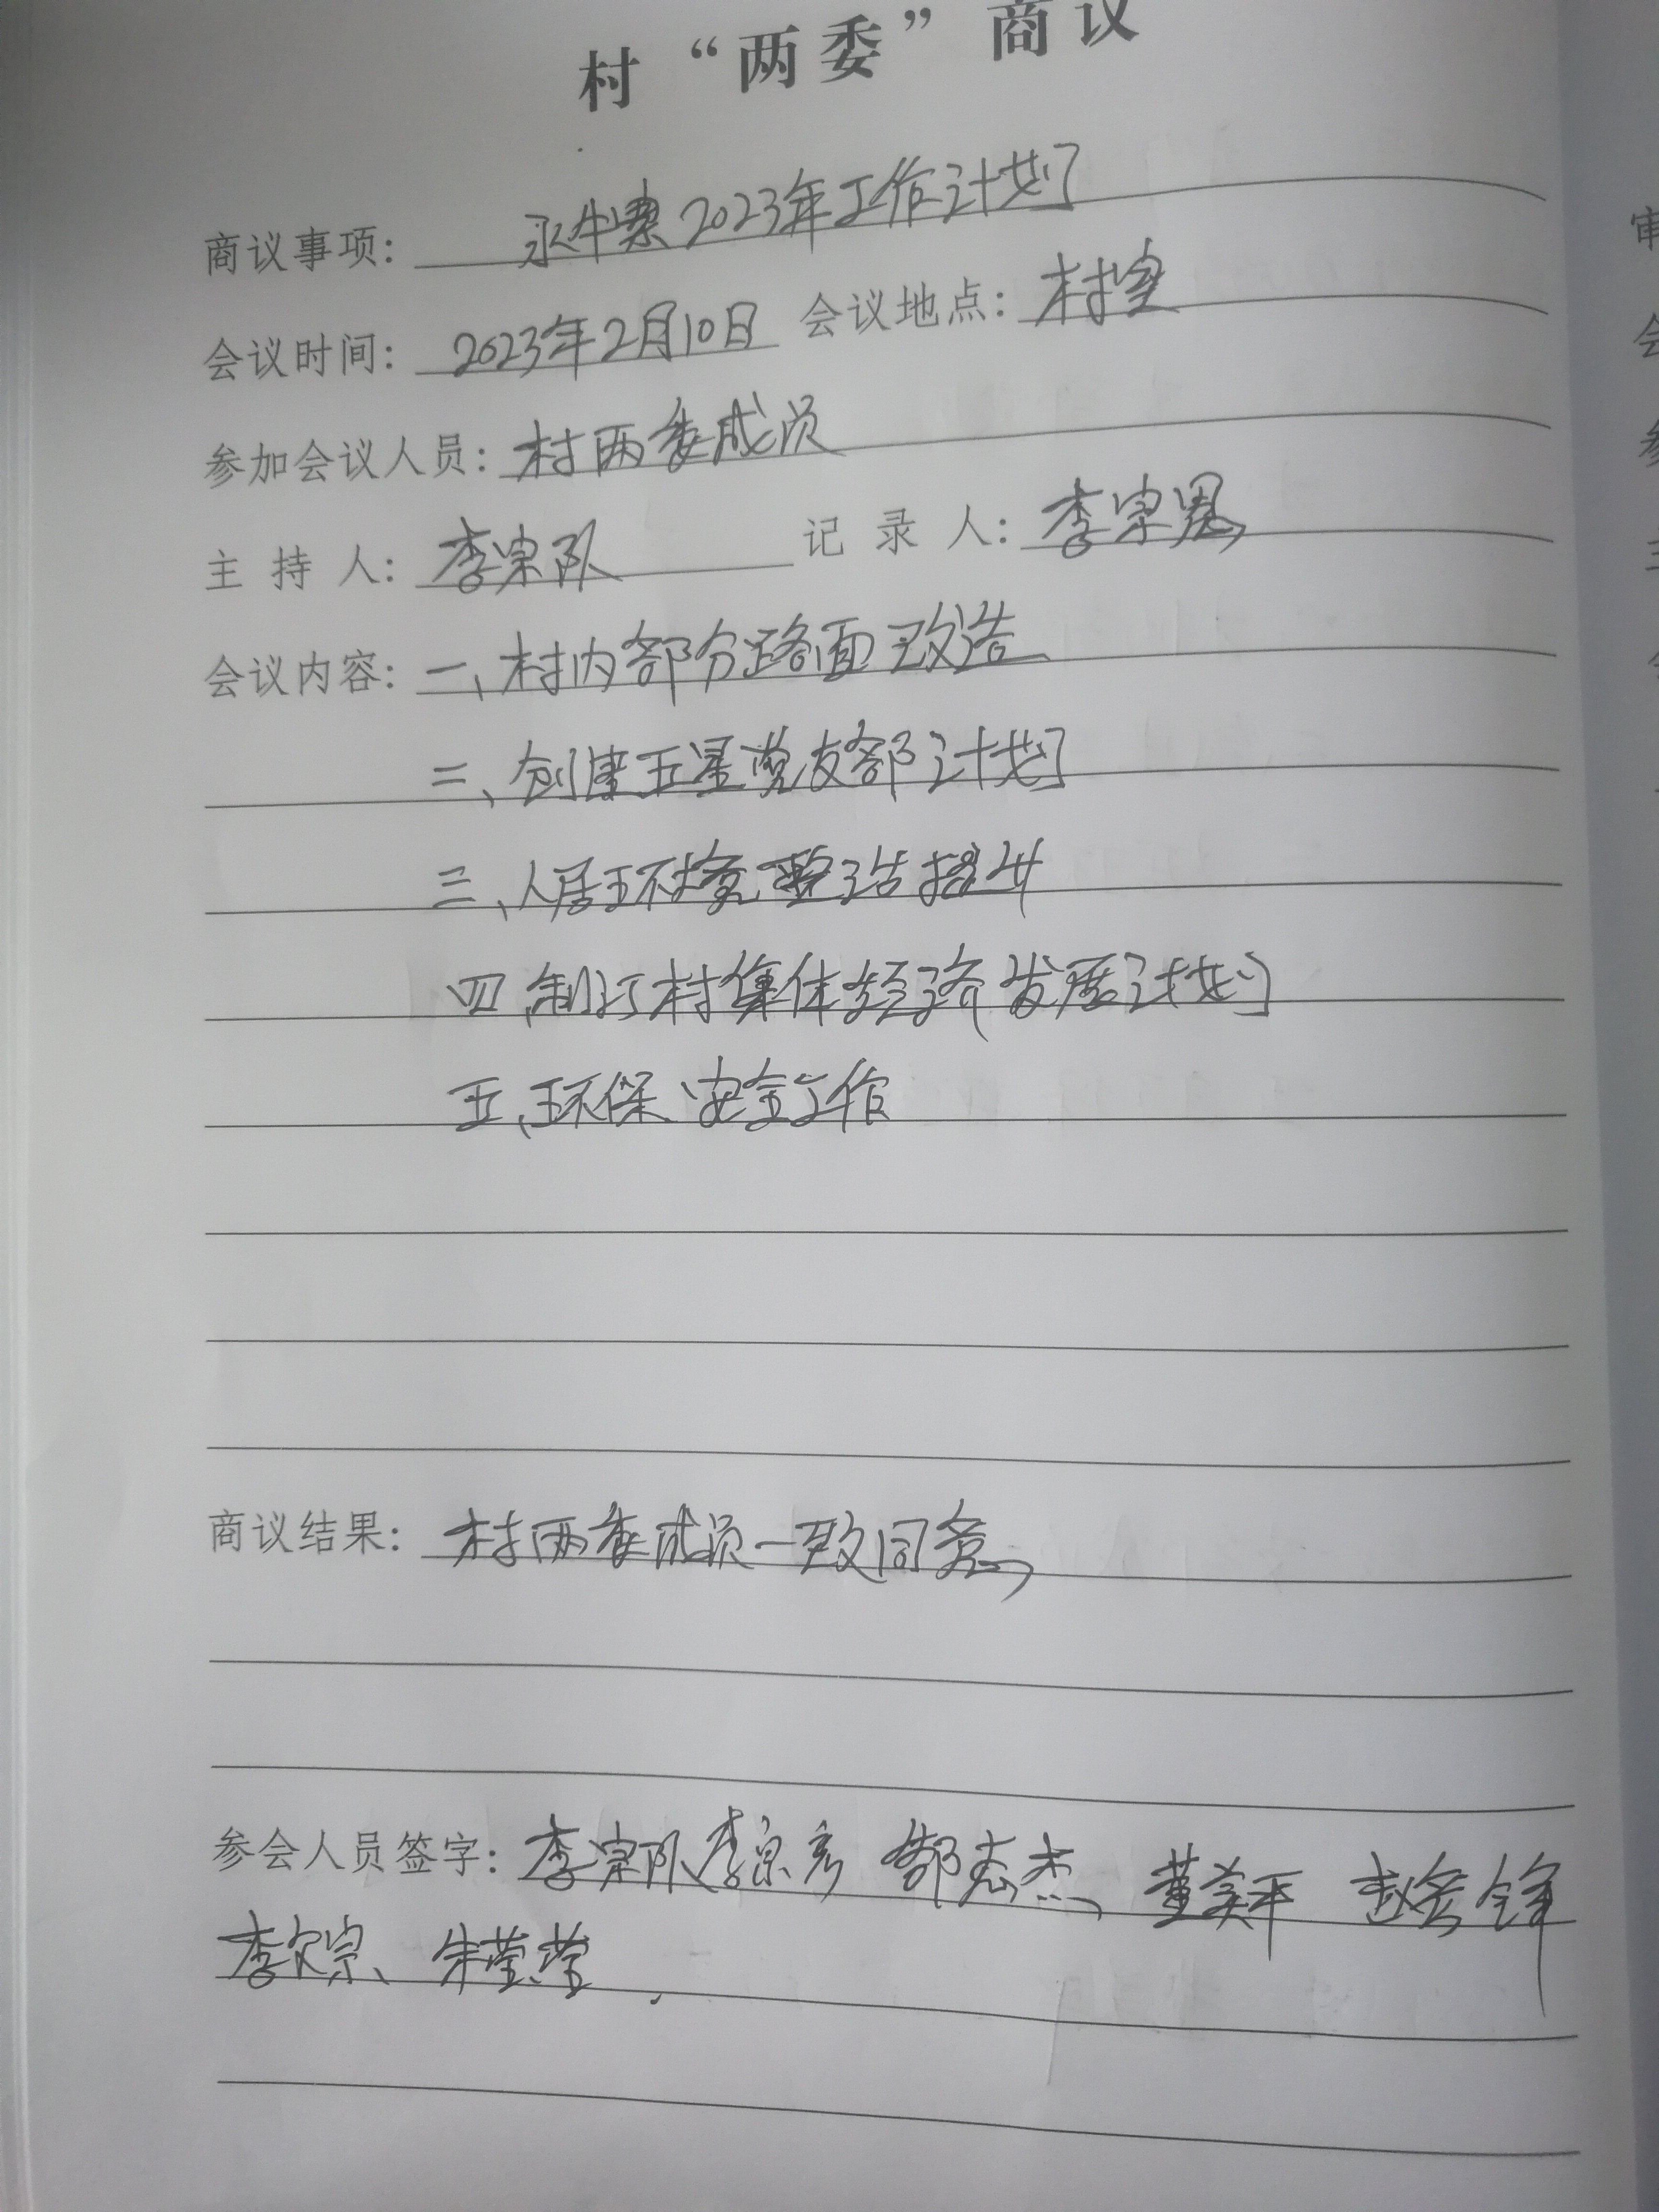 村“两委”商议
商议事项： 2023年工作计划
会议时间：2023年2月10日 会议地点：村室
参加会议人员：村两委成员
主持人：李宗队 记录人：李宗恩
会议内容：一、村内部分路面改造
二、创建五星党支部计划
三、人居环境整治提升
四、制订村集体经济发展计划
五、环保、安全工作
商议结果：村两委成员一致同意
参会人员签字：李宗队 李宗彦 郜志杰、董美平 赵 锋
李 宗、朱莹莹
审
会
参
主